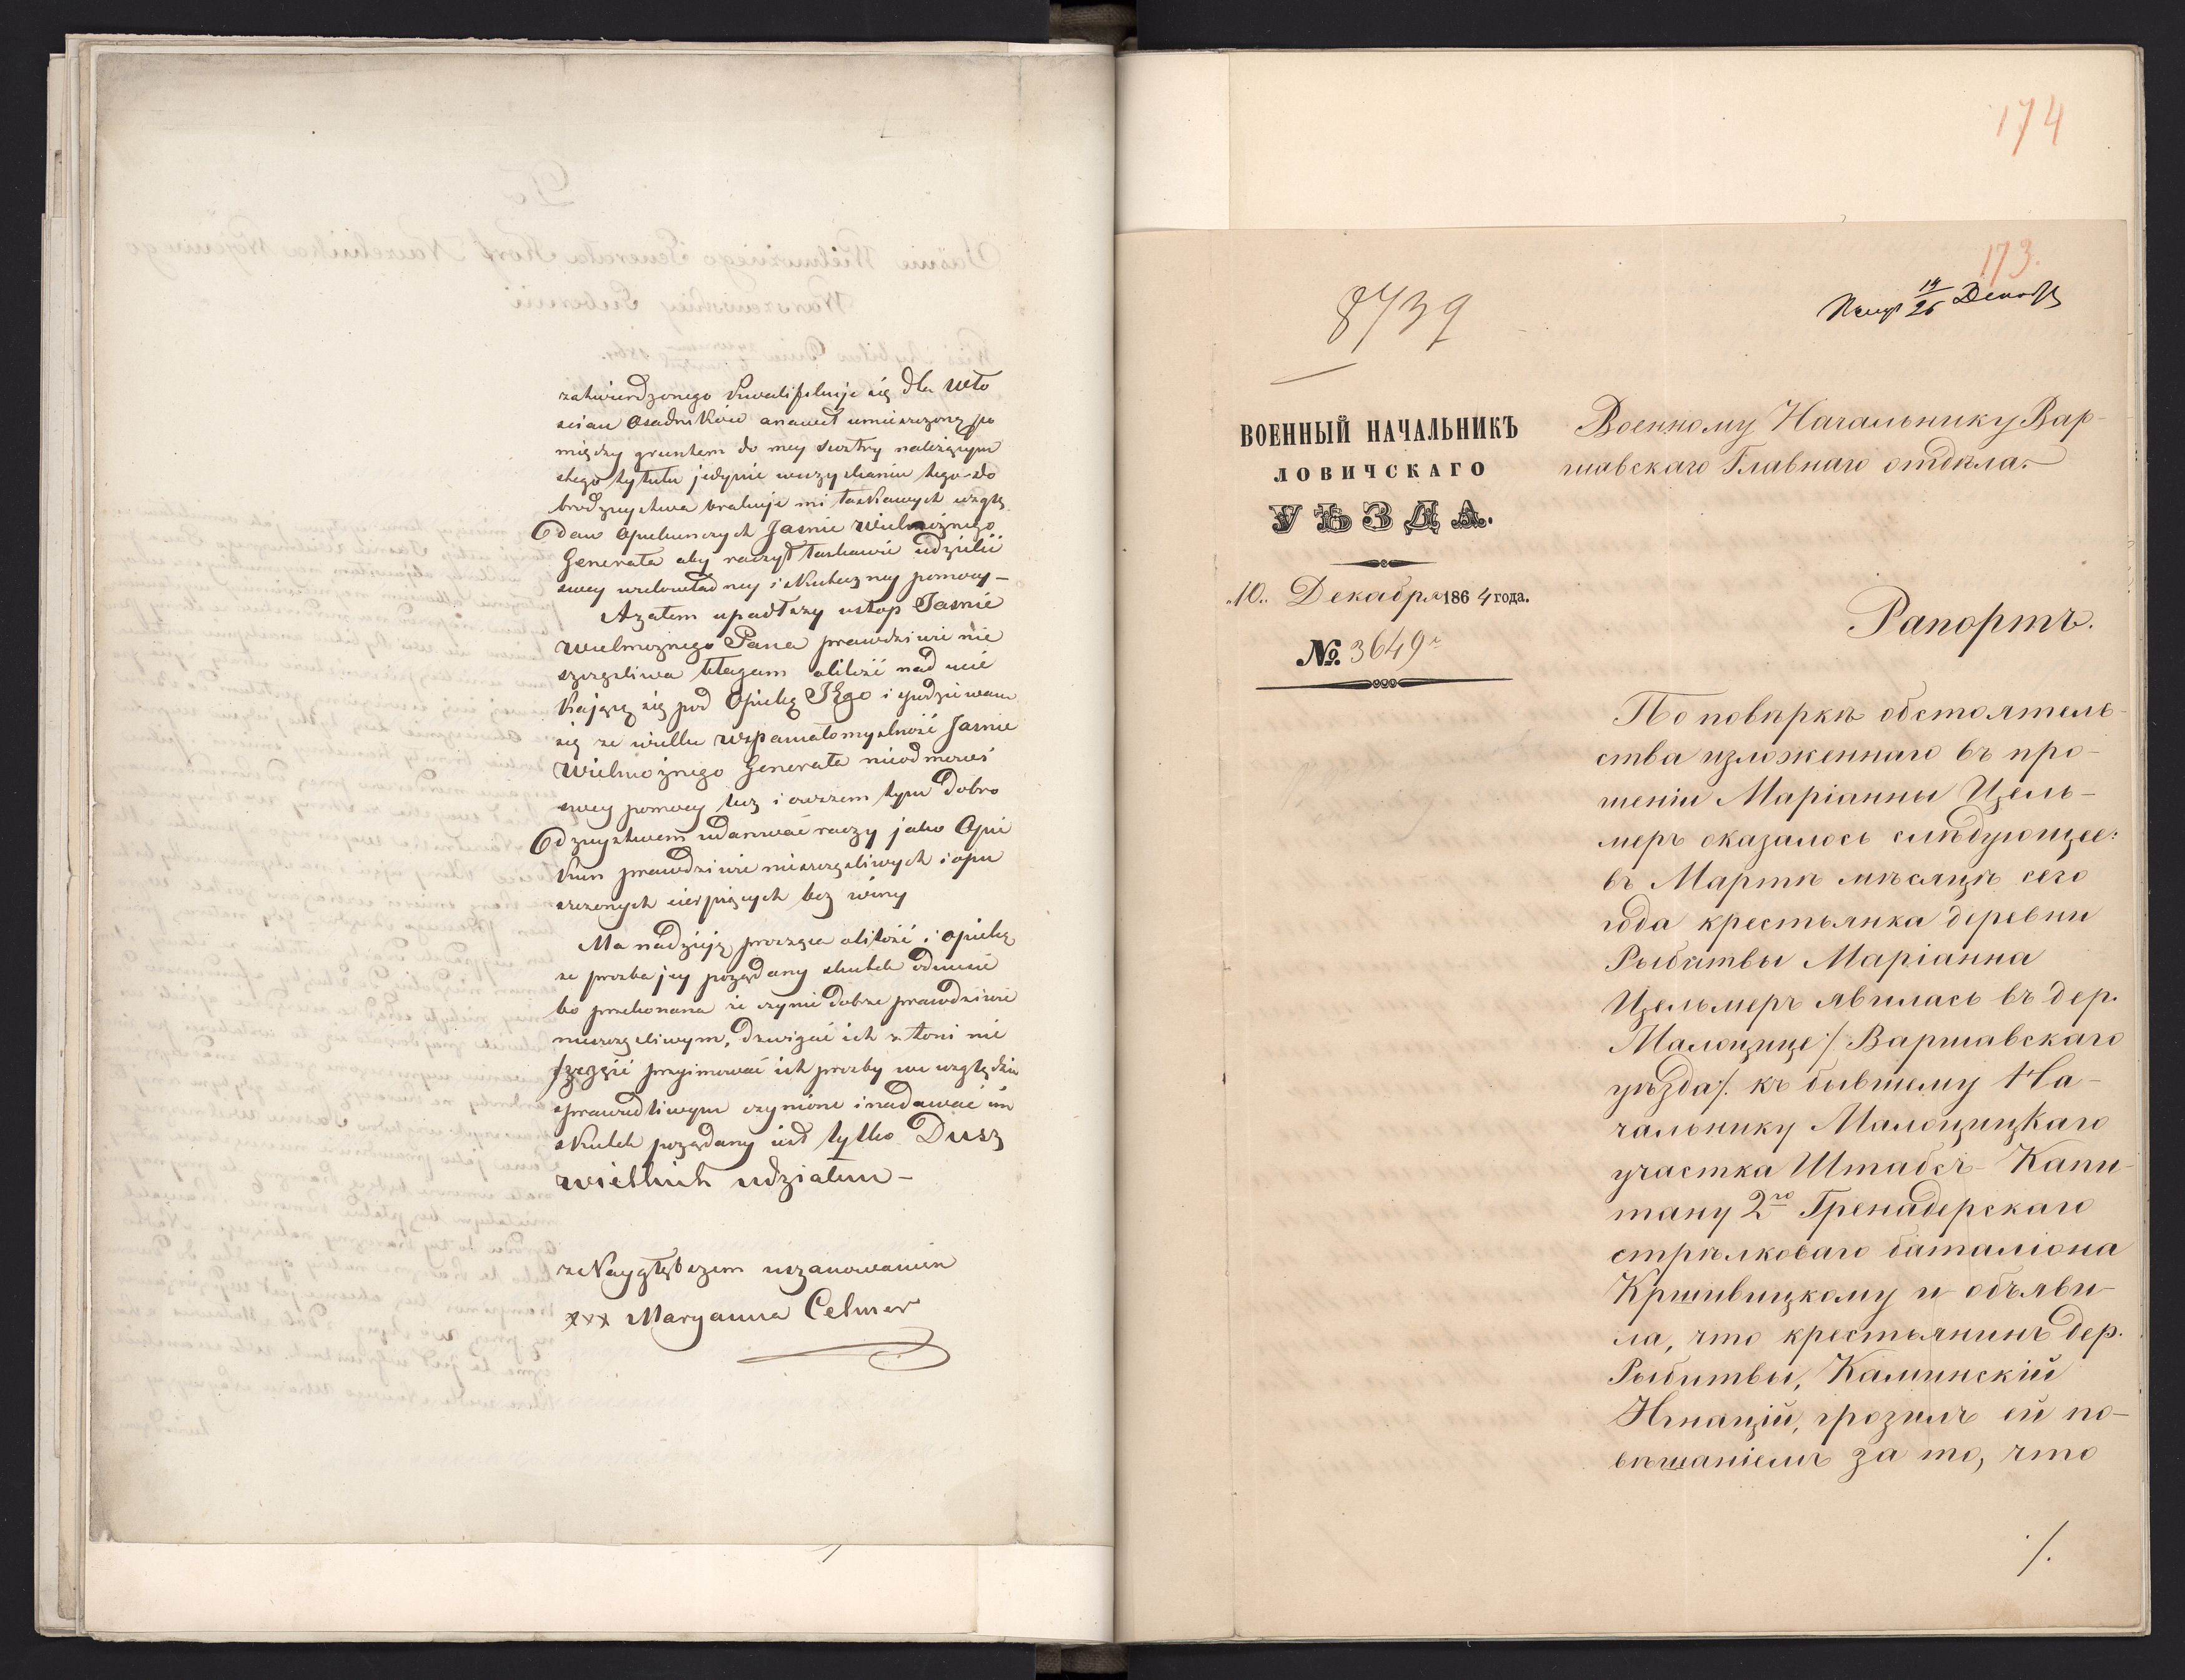 zatwierdzonego kwalifikuje się dla Wło
ścian Osadników anawet umieszczony po
między gruntem do mey siostry należącym
stego tytułu jedynie wuzyskaniu tego do
brodzieystwa brakuje mi łaskawych wzglę
dów Opiekunczych Jasnie Wielmoznego
Generała aby raczył łaskawie udzielić
swey wielowładney i skuteczney pomocy –
Azatem upadłszy ustop Jasnie
Wielmoznego Pana prawdziwie nie
szczęsliwa błagam olitość nad ucie
kającą się pod Opiekę JEgo i spodziewam
się ze wielka wspaniałomyslność Jasnie
Wielmoznego Generała nieodmowi
swey pomocy lecz i owszem tym dobro
dzieystwem udarować raczy jako Opie
kun prawdziwie nieszczęsliwych i opu
szczonych cierpiących bez winy
Ma nadzieję prosząca olitość i opiekę
ze prozba jey poządany skutek odniesie
bo przekonana ze czynić dobrze prawdziwie
nieszczęsliwym, dzwigać ich z toni nie
szczęść przyimować ich prozby we względzie
sprawiedliwym czynione i nadawać im
skutek poządany jest tylko Dusz
wielkich udziałem –
ze Naygłębszem uszanowaniem
xxx Maryanna Celmer
174
173.
8739
Получ 14/26 Декабр
ВОЕННЫЙ НАЧАЛЬНИКЪ
ЛОВИЧСКАГО
УѢЗДА.
„10„ Декабря 1864 года.
№ 3649
Военному Начальнику Вар-
шавскаго Главнаго отдѣла.
Рапортъ.
По повѣркѣ обстоятель-
ства изложеннаго въ про-
шеніи Маріанны Цель-
меръ оказалось слѣдующее:
въ Мартѣ мѣсяцѣ сего
года крестьянка деревни
Рыбитвы Маріанна
Цельмеръ явилась въ дер.
Малоцице /. Варшавскаго
уѣзда /. къ бывшему На-
чальнику Малоцицкаго
участка Штабсъ-Капи-
тану 2го Гренадерскаго
стрѣлковаго баталіона
Кршивицкому и объяви-
ла, что крестьянинъ дер.
Рыбитвы, Каминскій
Игнацій, грозилъ ей по-
вѣшаніемъ за то, что
./.